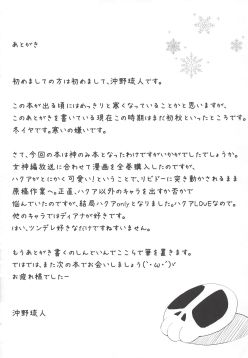 あとがき
初めましての方は初めまして、沖野琉人です。
この本が出る頃にはめっきりと寒くなっていることかと思いますが、
このあとがきを書いている現在この時期はまだ初秋といったところです。
冬イヤです。寒いの嫌いです。
さて、今回の本は神のみ本となったわけですがいかがでしたでしょうか。
女神編放送に合わせて漫画を全巻購入したのですが、
ハクアがとにかく可愛い!ということで、リビドーに突き動かされるまま
原稿作業へ。正直、ハクア以外のキャラを出すか否かで
悩んでいたのですが、結局ハクアonlyとなりました。ハクアLOVEなので。
他のキャラではディアナが好きです。
はい、ツンデレ好きなだけですねすいません。
もうあとがき書くのしんどいんでここらで筆を置きます。
ではでは、また次の本でお会いしましょう(`･ω･´)ゞ
お疲れ様でしたー
沖野琉人